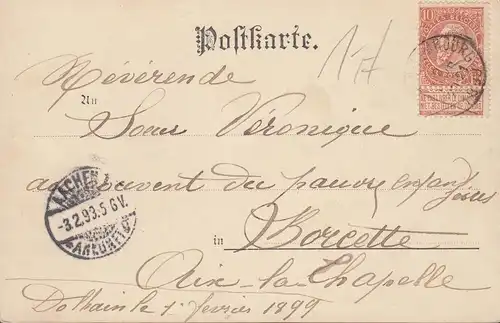 Postkarte.
17
10
Révérende
An
Soeur Véronique
au couvent du pauvre enfant
Jésus
in Borcette
Aix-la-Chapelle
Dolhain le 1 février 1899
AACHEN
-3.2.99.5-6V.
ANKUNFT